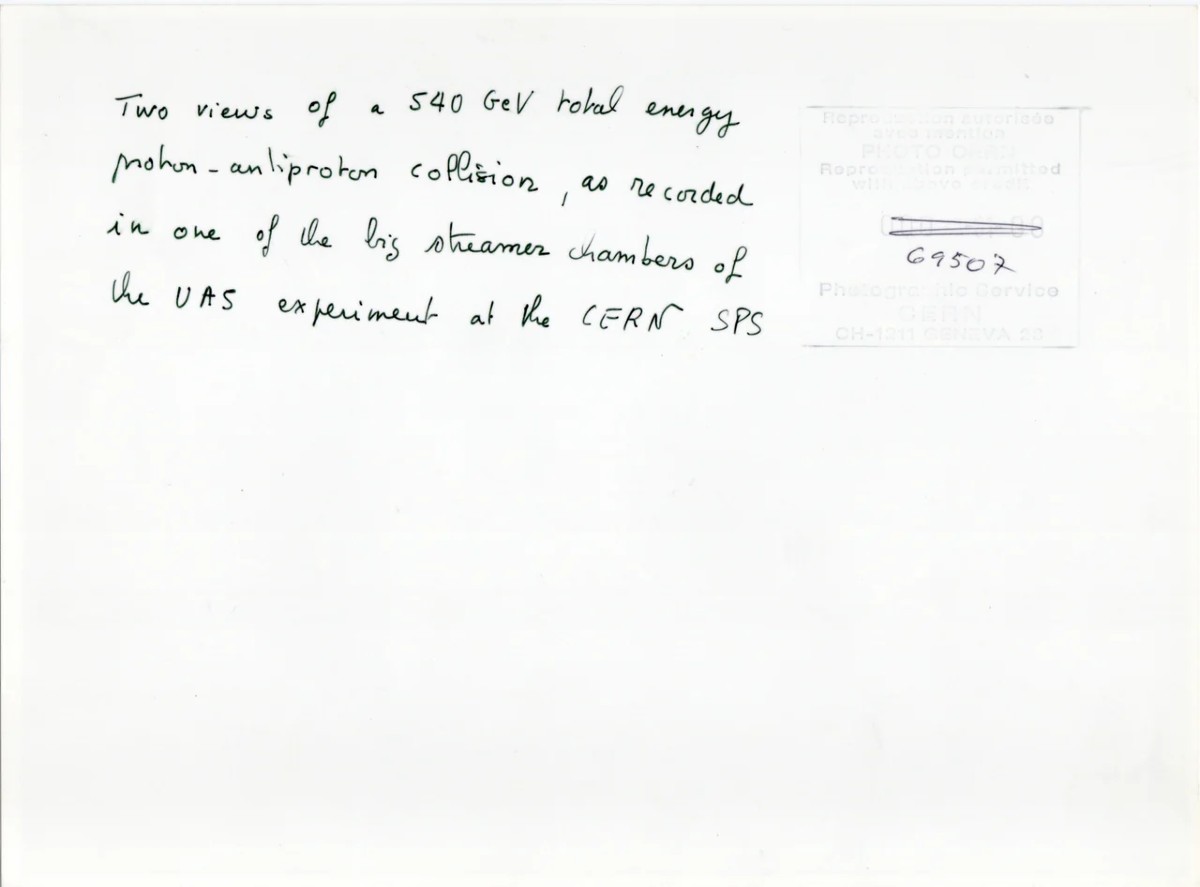 Two views of a 540 GeV total energy
proton-antiproton collision, as recorded
in one of the big streamer chambers of
the UA5 experiment at the CERN SPS
Reproduction autorisée
avec mention
PHOTO CERN
Reproduction permitted
with above credit
69507
Photographic Service
CERN
CH-1211 GENEVA 23